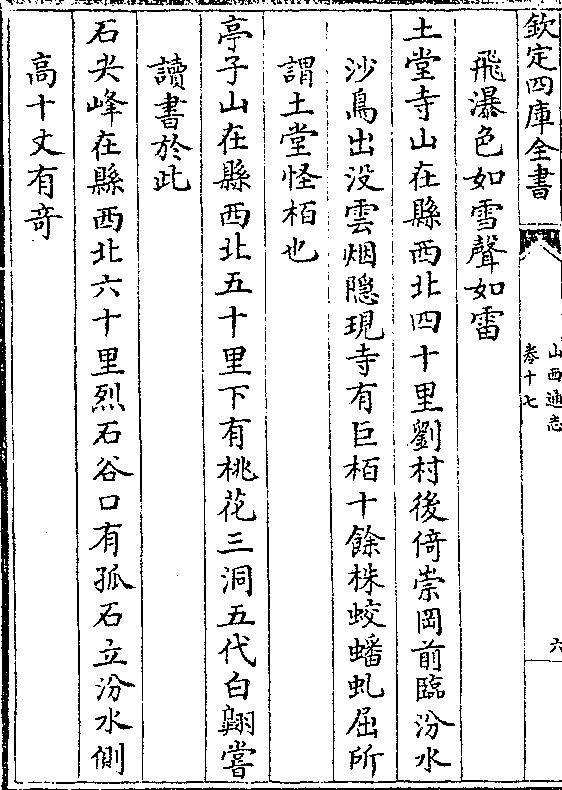 欽定四庫全書
山西通志
卷十七
六
飛瀑色如雪聲如雷
土堂寺山在縣西北四十里劉村後倚崇岡前臨汾水
沙鳥出没雲烟隠現寺有巨栢十餘株蛟蟠虬屈所
謂土堂怪栢也
亭子山在縣西北五十里下有桃花三洞五代白翮嘗
讀書於此
石尖峰在縣西北六十里烈石谷口有孤石立汾水側
高十丈有竒